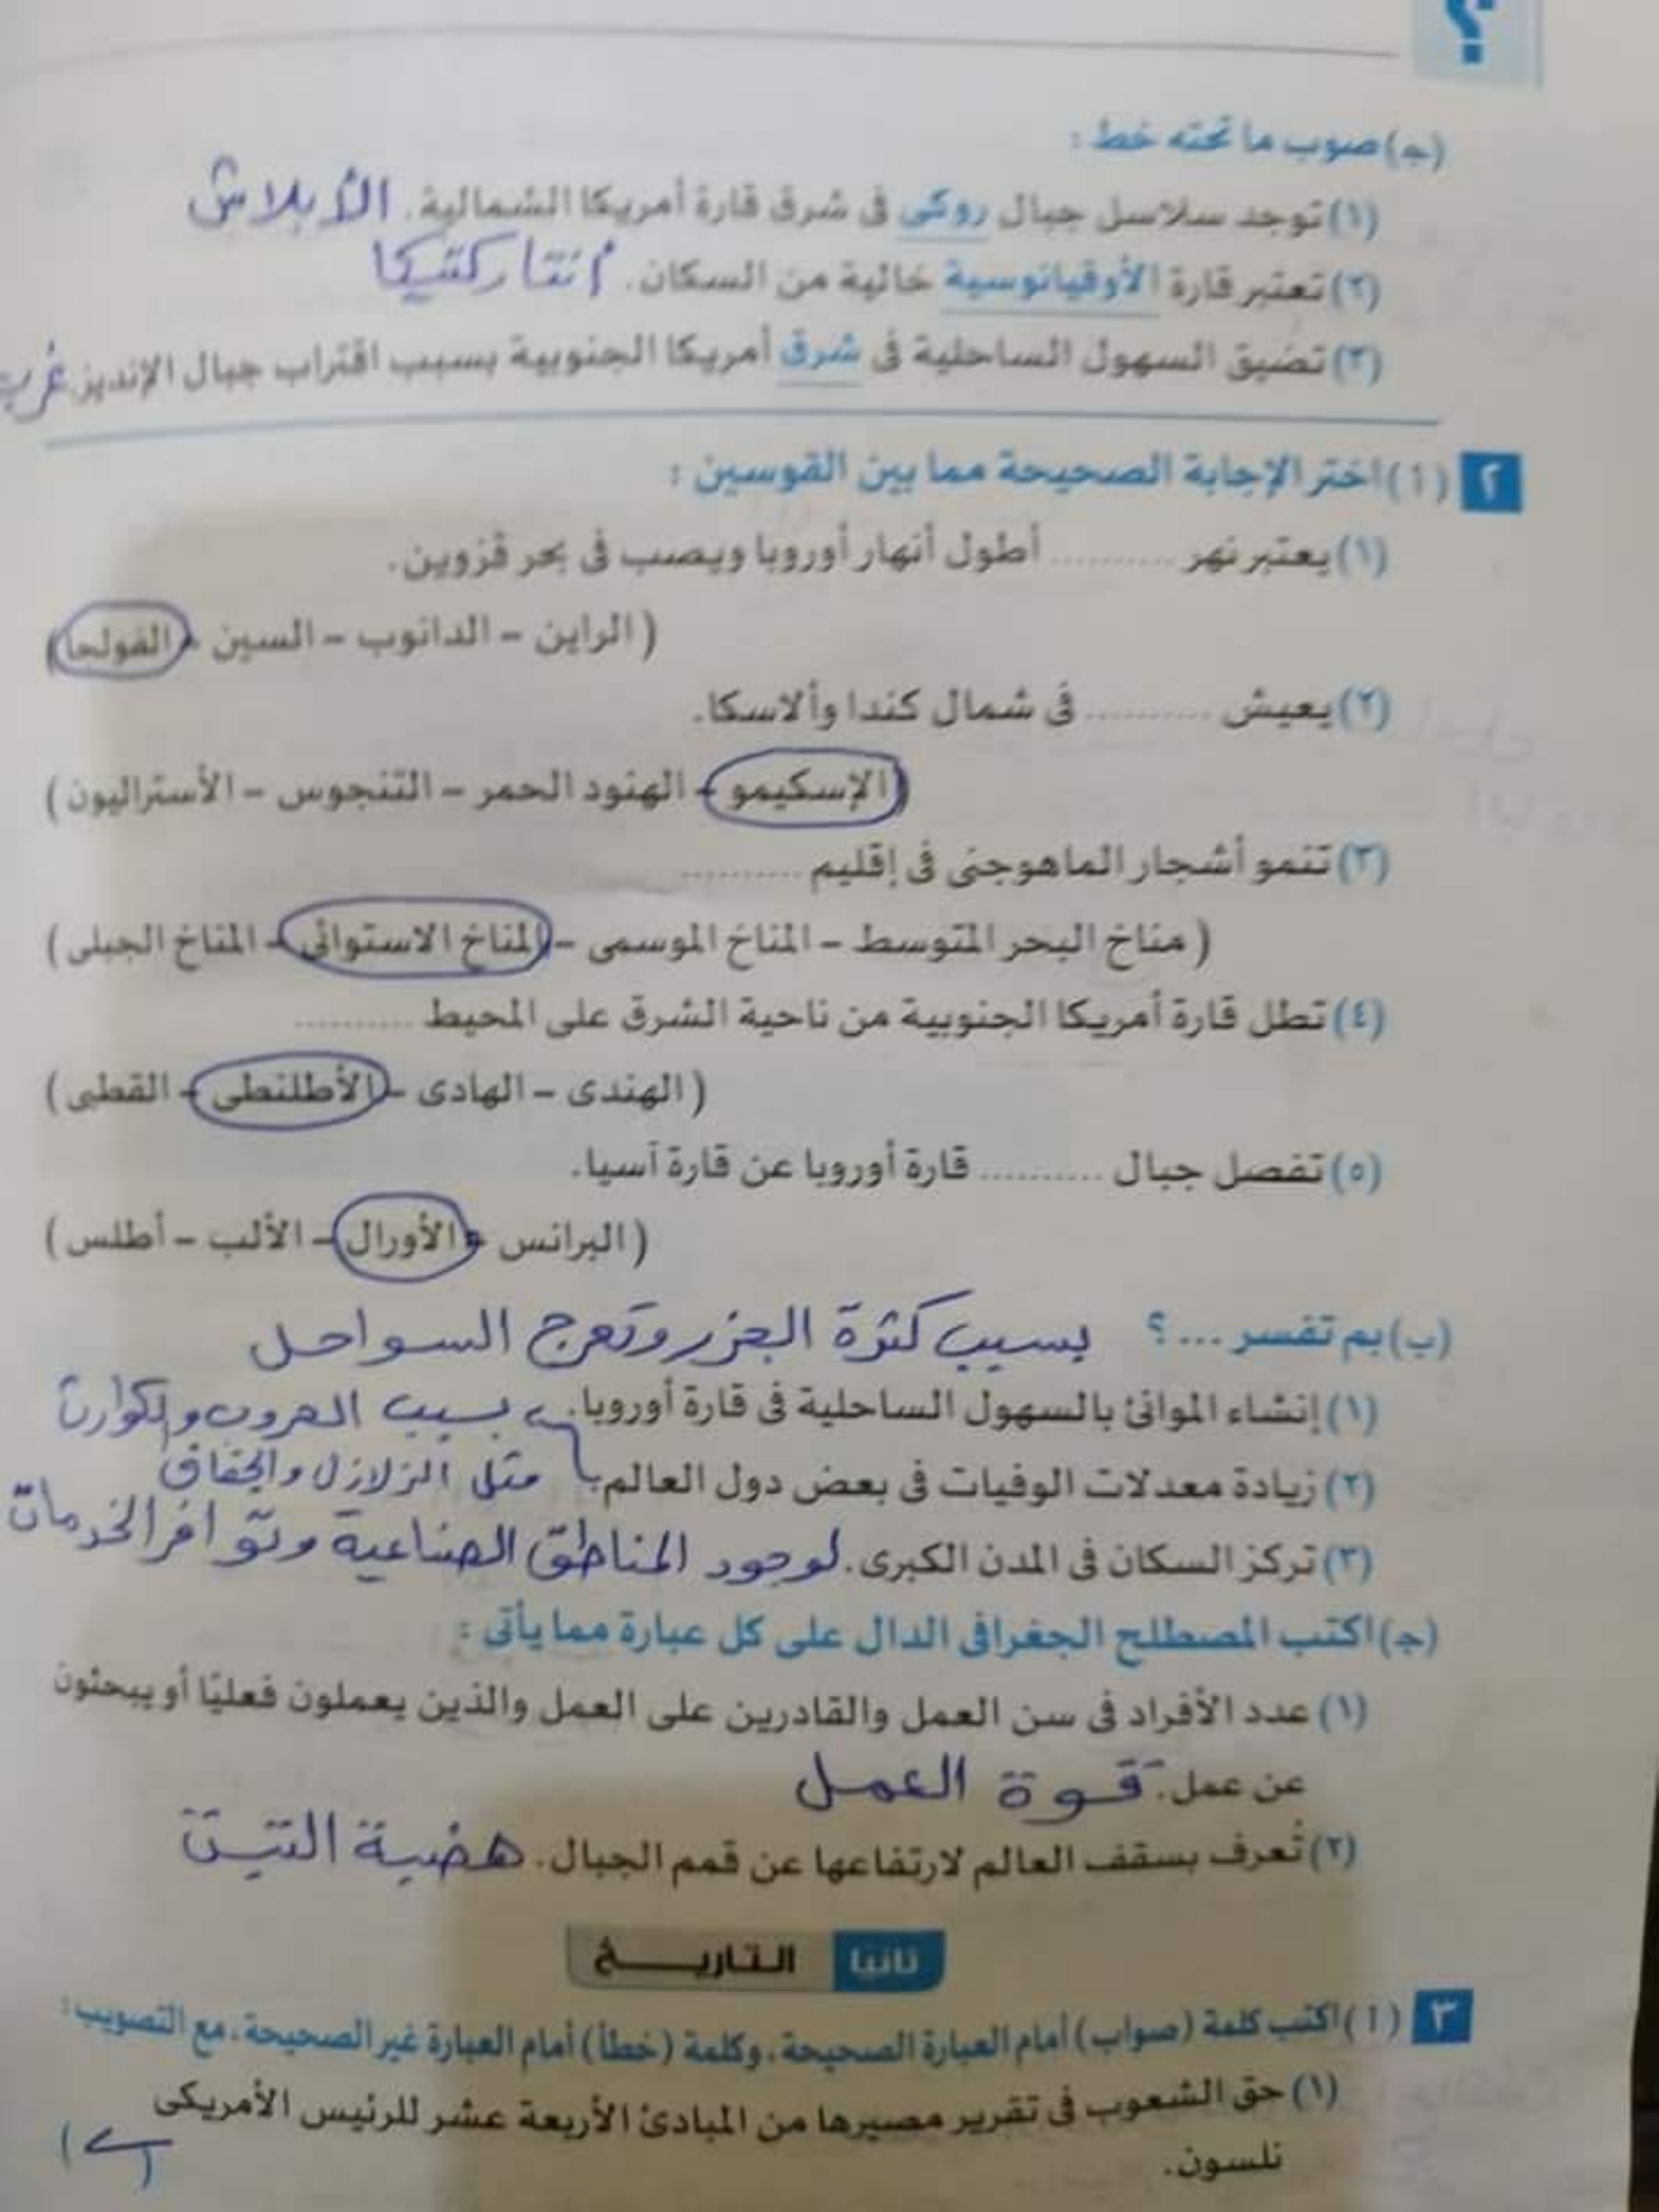 ؟
(جـ) صوب ما تحته خط :
(١) توجد سلاسل جبال روكى فى شرق قارة أمريكا الشمالية. الأبلاش
(٢) تعتبر قارة الأوقيانوسية خالية من السكان. أنتاركتيكا
(٣) تضيق السهول الساحلية فى شرق أمريكا الجنوبية بسبب اقتراب جبال الإنديز. غرب
٢ (أ) اختر الإجابة الصحيحة مما بين القوسين :
(١) يعتبر نهر .......... أطول أنهار أوروبا ويصب فى بحر قزوين.
( الراين – الدانوب – السين – الفولجا )
(٢) يعيش .......... فى شمال كندا وألاسكا.
( الإسكيمو – الهنود الحمر – التنجوس – الأستراليون )
(٣) تنمو أشجار الماهوجنى فى إقليم ..........
( مناخ البحر المتوسط – المناخ الموسمى – المناخ الاستوائى – المناخ الجبلى )
(٤) تطل قارة أمريكا الجنوبية من ناحية الشرق على المحيط ..........
( الهندى – الهادى – الأطلنطى – القطبى )
(٥) تفصل جبال .......... قارة أوروبا عن قارة آسيا.
( البرانس – الأورال – الألب – أطلس )
(ب) بم تفسر ... ؟ بسبب كثرة الجزر وتعرج السواحل
(١) إنشاء الموانئ بالسهول الساحلية فى قارة أوروبا. بسبب الحروب والكوارث
(٢) زيادة معدلات الوفيات فى بعض دول العالم. مثل الزلازل والجفاف
(٣) تركز السكان فى المدن الكبرى. لوجود المناطق الصناعية وتوافر الخدمات
(جـ) اكتب المصطلح الجغرافى الدال على كل عبارة مما يأتى :
(١) عدد الأفراد فى سن العمل والقادرين على العمل والذين يعملون فعليًا أو يبحثون
عن عمل. قوة العمل
(٢) تُعرف بسقف العالم لارتفاعها عن قمم الجبال. هضبة التبت
ثانيا التاريخ
٣ (أ) اكتب كلمة (صواب) أمام العبارة الصحيحة، وكلمة (خطأ) أمام العبارة غير الصحيحة، مع التصويب :
(١) حق الشعوب فى تقرير مصيرها من المبادئ الأربعة عشر للرئيس الأمريكى
نلسون.